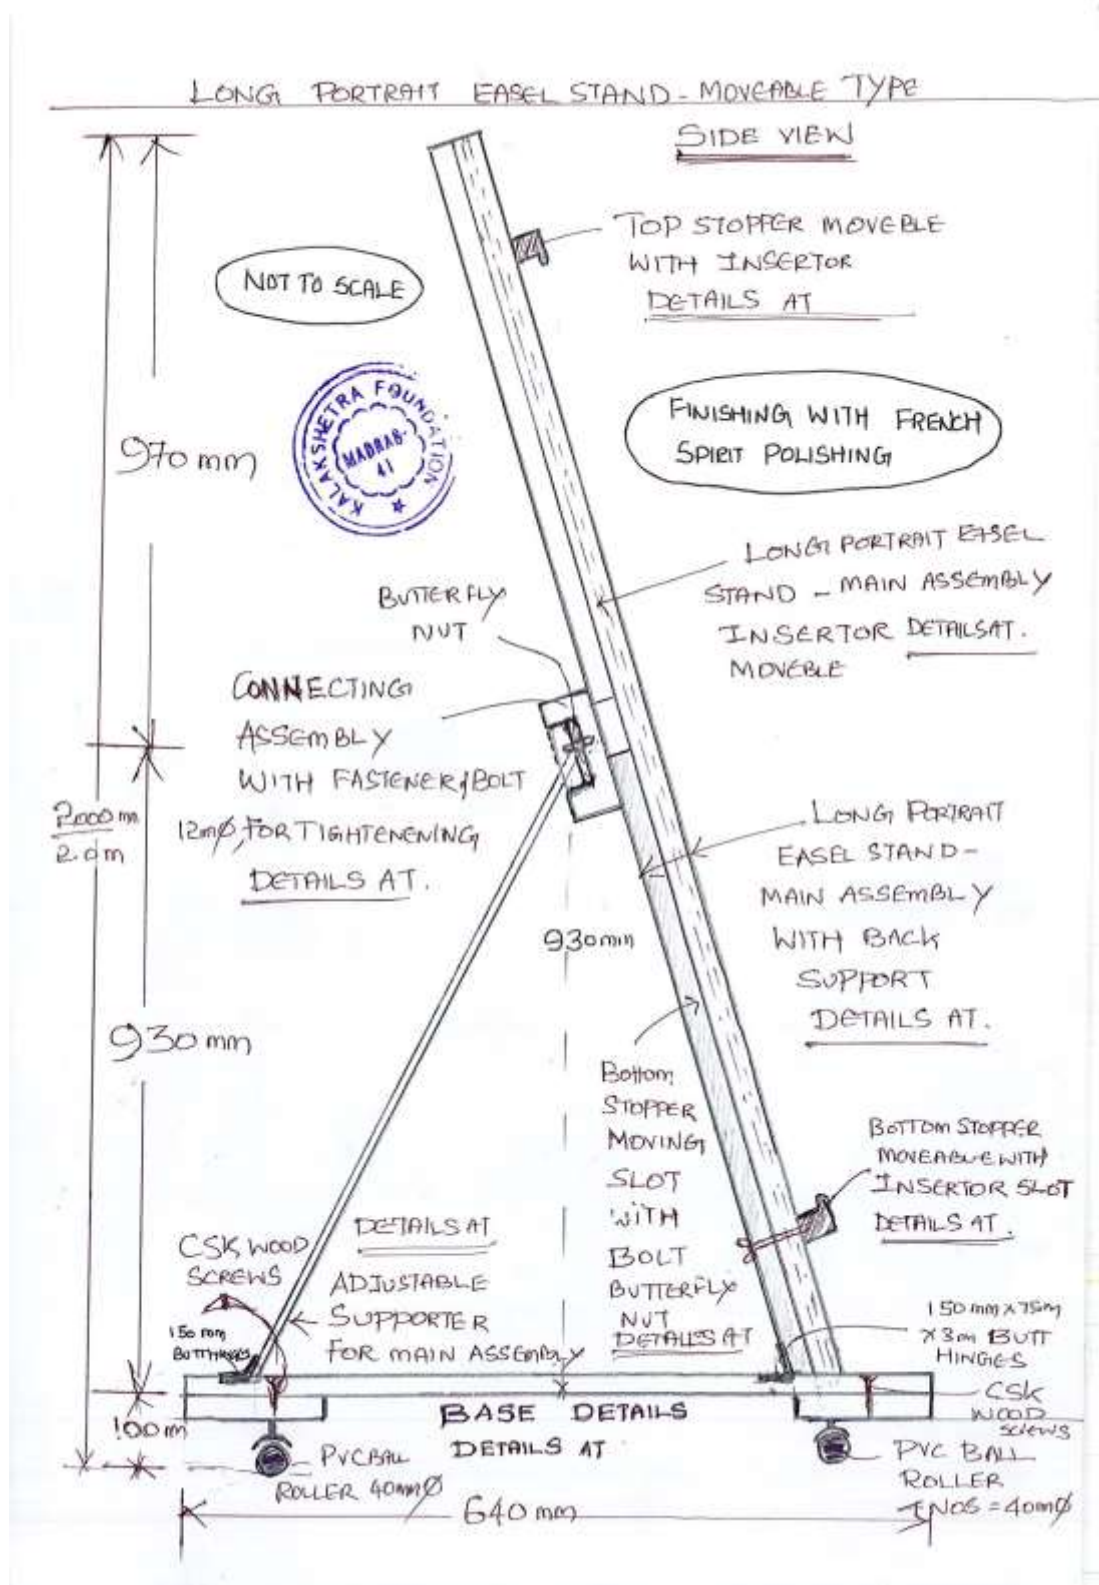 LONG PORTRAIT EASEL STAND - MOVEABLE TYPE
SIDE VIEW
TOP STOPPER MOVEBLE
WITH INSERTOR
DETAILS AT
NOT TO SCALE
KALAKSHETRA FOUNDATION
MADRAS-
41
FINISHING WITH FRENCH
SPIRIT POLISHING
970 mm
LONG PORTRAIT EASEL
STAND - MAIN ASSEMBLY
INSERTOR DETAILSAT.
MOVEBLE
BUTTERFLY
NUT
CONNECTING
ASSEMBLY
WITH FASTENER & BOLT
12mØ, FOR TIGHTENENING
DETAILS AT.
2000 mm
2.0m
LONG PORTRAIT
EASEL STAND-
MAIN ASSEMBLY
WITH BACK
SUPPORT
DETAILS AT.
930mm
930 mm
Bottom
STOPPER
MOVING
SLOT
WITH
BOLT
BUTTERFLY
NUT
DETAILS AT
BOTTOM STOPPER
MOVEABLE WITH
INSERTOR SLOT
DETAILS AT.
CSK WOOD
SCREWS
DETAILS AT
ADJUSTABLE
SUPPORTER
FOR MAIN ASSEMBLY
150 mm
150 mm x 75m
x 3m BUTT
HINGES
CSK
WOOD
SCREWS
100 m
BASE DETAILS
DETAILS AT
PVC BALL
ROLLER 40mmØ
PVC BALL
ROLLER
NOS = 40mØ
640 mm